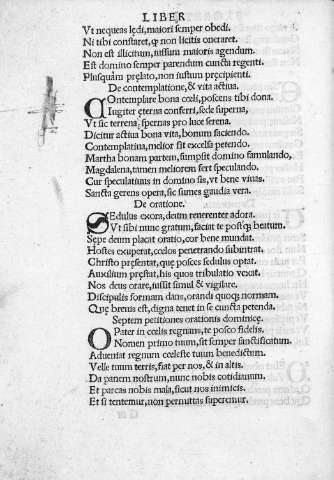 LIBER
Vt nequeas lędi, maiori semper obedi.
Ni tibi constaret, ꝙ non licitis oneraret.
Non est illicitum, iussum maioris agendum.
Est domino semper parendum cuncta regenti.
Plusquàm pręlato, non iustum pręcipienti.
De contemplatione, & vita actiua.
Contemplare bona cœli, poscens tibi dona.
Iugiter ęterna conferri, sede superna,
Vt sic terrena, spernas pro luce serena.
Dicitur actiua bona vita, bonum faciendo.
Contemplatiua, melior sit excelsa petendo.
Martha bonam partem, sumpsit domino famulando,
Magdalena, tamen meliorem fert speculando.
Cur speculatiuus in domino sis, vt bene viuas.
Sancta gerens opera, sic sumes gaudia vera.
De oratione.
Sedulus exora, deum reuerenter adora.
Vt sibi nunc gratum, faciat te postꝗ beatum.
Sepe deum placat oratio, cor bene mundat.
Hostes exuperat, cœlos penetrando subintrat.
Christo pręsentat, quę posces sedulus optat.
Auxilium pręstat, his quos tribulatio vexat.
Nos deus orare, iussit simul & vigilare.
Discipulis formam dans, orandi quoqꝫ normam.
Quę breuis est, digna tenet in se cuncta petenda.
Septem petitiones orationis dominicę.
O Pater in celis regnans, te posco fidelis.
Nomen primo tuum, sit semper sanctificatum.
Adueniat regnum cœleste tuum benedictum.
Velle tuum terris, fiat per nos, & in altis.
Da panem nostrum, nunc nobis cotidianum.
Et parcas nobis mala, sicut nos inimicis.
Et si tentemur, non permittas superemur.